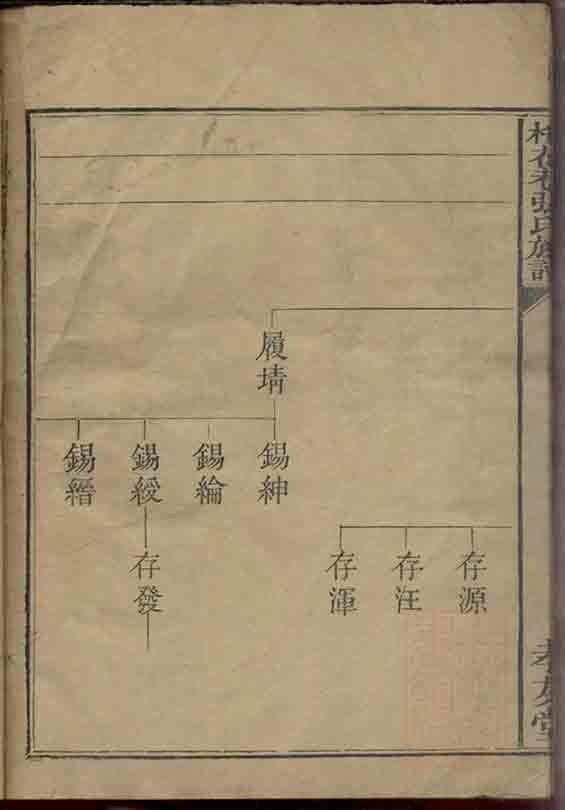 張氏族譜
孝友堂
履堉
錫紳
錫綸
錫綬
錫縉
存源
存汪
存渾
存發